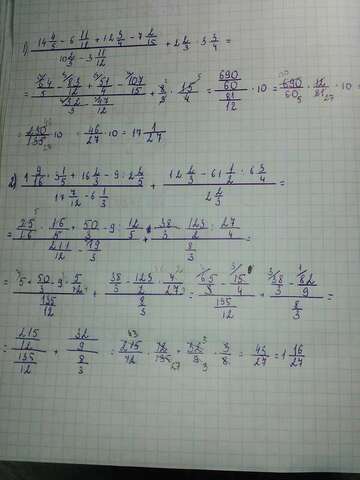 1) (14 4/5 - 6 11/12 + 12 3/4 - 7 2/15) / (10 2/3 - 3 11/12) + 2 2/3 · 3 3/4 =
= (74/5 - 83/12 + 51/4 - 107/15) / (32/3 - 47/12) + 8/3 · 15/4 = (690/60) / (81/12) · 10 = 690/60 · 12/81 · 10 =
= 230/135 · 10 = 46/27 · 10 = 17 1/27
2) (1 9/16 · 3 1/5 + 16 2/3 - 9 : 2 2/5) / (17 7/12 - 6 1/3) + (12 2/3 - 61 1/2 : 6 3/4) / (2 2/3) =
= (25/16 · 16/5 + 50/3 - 9 : 12/5) / (211/12 - 19/3) + (38/3 - 123/2 : 27/4) / (8/3) =
= (5 + 50/3 - 9 · 5/12) / (135/12) + (38/3 - 123/2 · 4/27) / (8/3) = (65/3 - 15/4) / (135/12) + (38/3 - 82/9) / (8/3) =
= (215/12) / (135/12) + (32/9) / (8/3) = 215/12 · 12/135 + 32/9 · 3/8 = 43/27 = 1 16/27